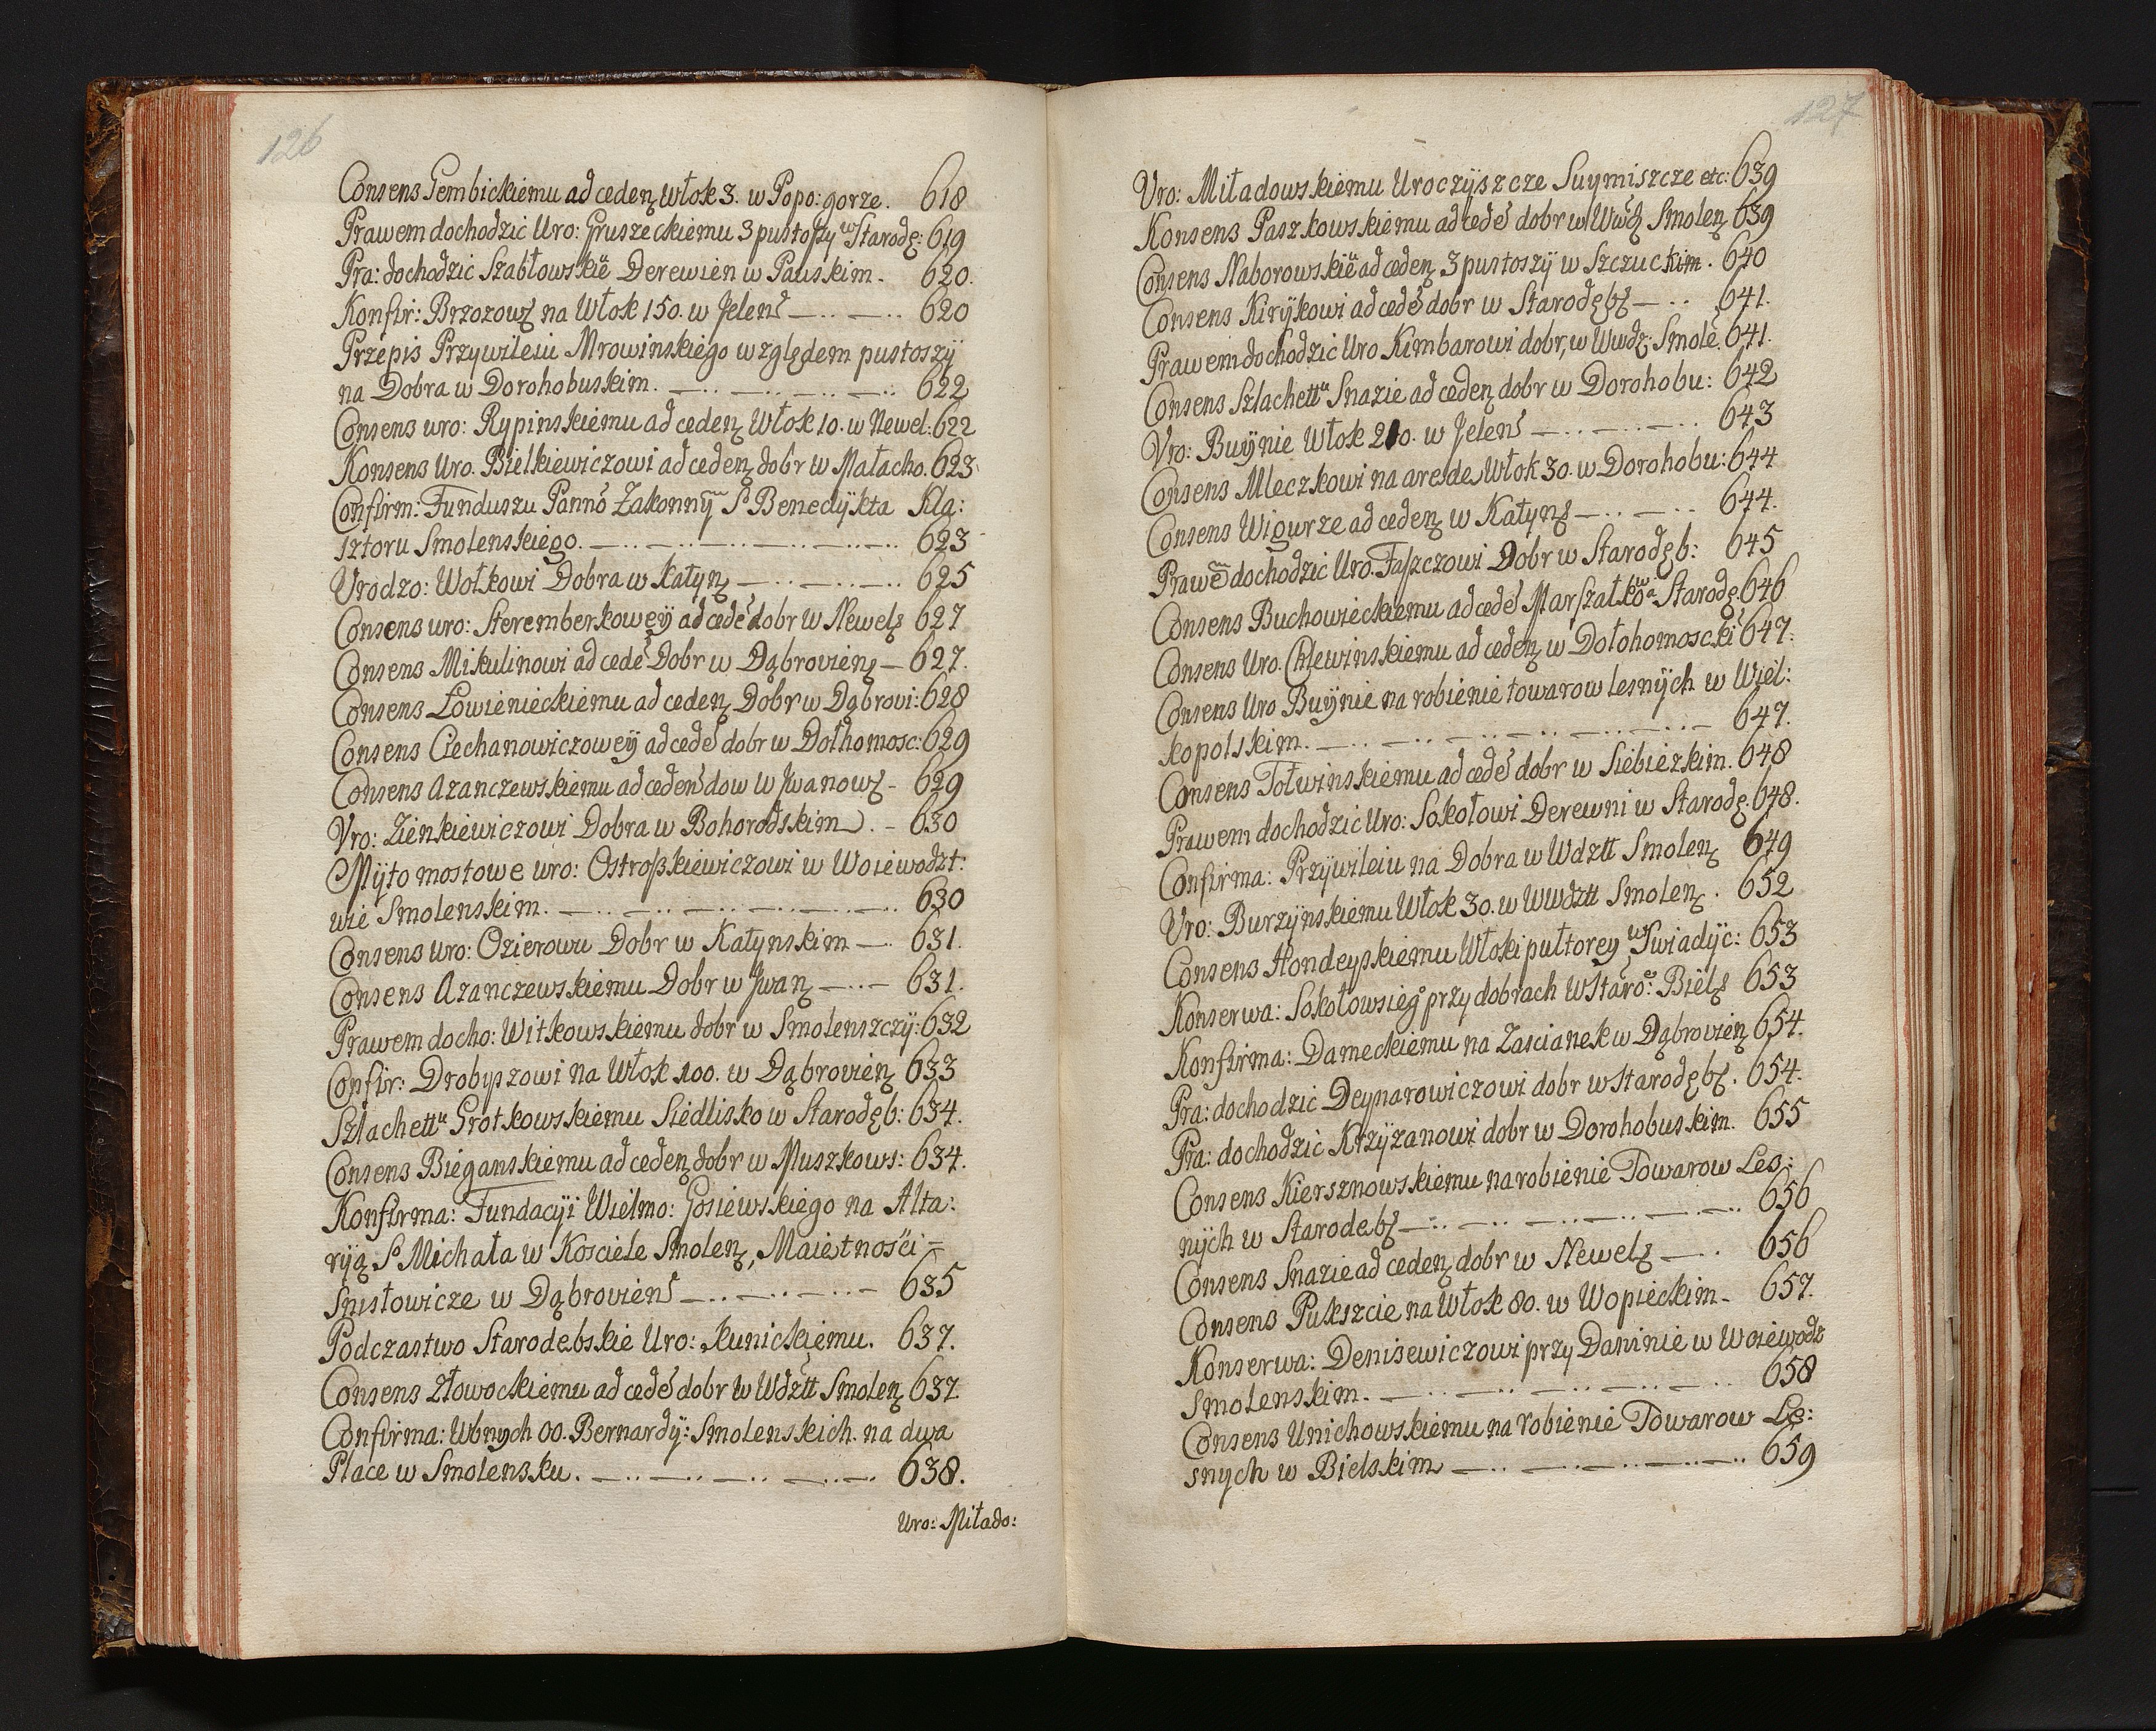 126
Consens Gembickiemu ad ceden Włok 3. w Popo: gorze. 618
Prawem dochodzic Uro: Gruszeckiemu 3 pustoszy w Starodę: 619
Pra: dochodzic Szabłowskiē Derewien w Pauskim. 620.
Konfir: Brzozows na Włok 150. w Jelens 620
Przepis Przywileiu Mrowinskiego względem pustoszÿ
na Dobra w Dorohobuskim. 622
Consens uro: Rypinskiemu ad ceden Włok 10. w Newel: 622
Konsens Uro. Bielkiewiczowi ad ceden dobr w Małacho. 623
Confirm: Funduszu Panno Zakonnÿ S Benedÿkta Kla:
sztoru Smolenskiego. 623
Vrodzo: Wołkowi Dobra w Katyn 625
Consens uro: Steremberkoweÿ ad cede dobr w Newels 627
Consens Mikulinowi ad cede Dobr w Dąbroviens 627.
Consens Łowienieckiemu ad ceden Dobr w Dąbrovi: 628
Consens Ciechanowiczoweÿ ad cede dobr w Dołhomosc: 629
Consens Azanczewskiemu ad ceden dow w Jwanows 629
Vro: Zienkiewiczowi Dobra w Bohorodskim. 630
Mÿto mostowe uro: Ostroszkiewiczowi w Woiewodzt:
wie Smolenskim. 630
Consens uro: Ozierowu Dobr w Katynskim 631.
Consens Azanczewskiemu Dobr w Jwan 631.
Prawem docho: Witkowskiemu dobr w Smolenszczÿ: 632
Confir: Drobyszowi na Włok 100. w Dąbrovien 633
Szlachettu Grotkowskiemu Siedlisko w Starodęb: 634.
Consens Bieganskiemu ad ceden dobr w Muszkows: 634.
Konfirma: Fundacÿi Wielmo: Gosiewskiego na Alta:
rÿą S Michała w Kosciele Smolen, Maiętności
Snisłowicze w Dąbroviens 635
Podczastwo Starodebskie Uro: Kunickiemu. 637.
Consens Złowockiemu ad cede dobr w Wdztt Smolen 637.
Confirma: Wbnych OO. Bernardÿ: Smolenskich. na dwa
Place w Smolensku. 638.
Uro: Miłado:
127
Vro: Miładowskiemu Uroczÿszcze Suymiszcze etc: 639
Konsens Paszkowskiemu ad cede dobr w Wwdz Smolen 639
Consens Naborowskiē ad ceden 3 pustoszÿ w Szczuckim. 640
Consens Kirÿkowi ad cede dobr w Starodębs 641.
Prawem dochodzic Uro Kimbarowi dobr, w Wwdz: Smole. 641.
Consens Szlachettu Snazie ad ceden dobr w Dorohobu: 642
Vro: Buÿnie Włok 210. w Jelens 643
Consens Mleczkowi na aresde Włok 30. w Dorohobu: 644
Consens Wigurze ad ceden w Katyns 644.
Prawē dochodzic Uro. Faszczowi Dobr w Starodęb: 645
Consens Buchowieckiemu ad cede Marszałkowa Starodę 646
Consens Uro. Chlewinskiemu ad ceden w Dołohomoscki 647.
Consens Uro Buÿnie na robienie towarow lesnÿch w Wiel:
kopolskim. 647.
Consens Tołwinskiemu ad cede dobr w Siebiezkim. 648
Prawem dochodzic Uro: Sokołowi Derewni w Starodę. 648.
Confirma: Przÿwileiu na Dobra w Wdztt Smolen 649
Vro: Burzÿnskiemu Włok 30. w Wwdztt Smolen. 652
Consens Hondeyskiemu Włoki pułtorey w Swiadÿc: 653
Konserwa: Sokołowsieg przy dobrach w Staro: Biels 653
Konfirma: Dameckiemu na Zascianek w Dąbrovien 654.
Pra: dochodzic Deynarowiczowi dobr w Starodębs. 654.
Pra: dochodzic Krzÿzanowi dobr w Dorohobuskim. 655
Consens Kiersznowskiemu na robienie Towarow Les:
nÿch w Starodębs 656
Consens Snazie ad ceden dobr w Newels 656
Consens Pukszcie na Włok 80. w Wopieckim 657.
Konserwa: Denisewiczowi przy Daninie w Woiewodz
Smolenskim. 658
Consens Unichowskiemu na robienie Towarow Le:
snych w Bielskim 659